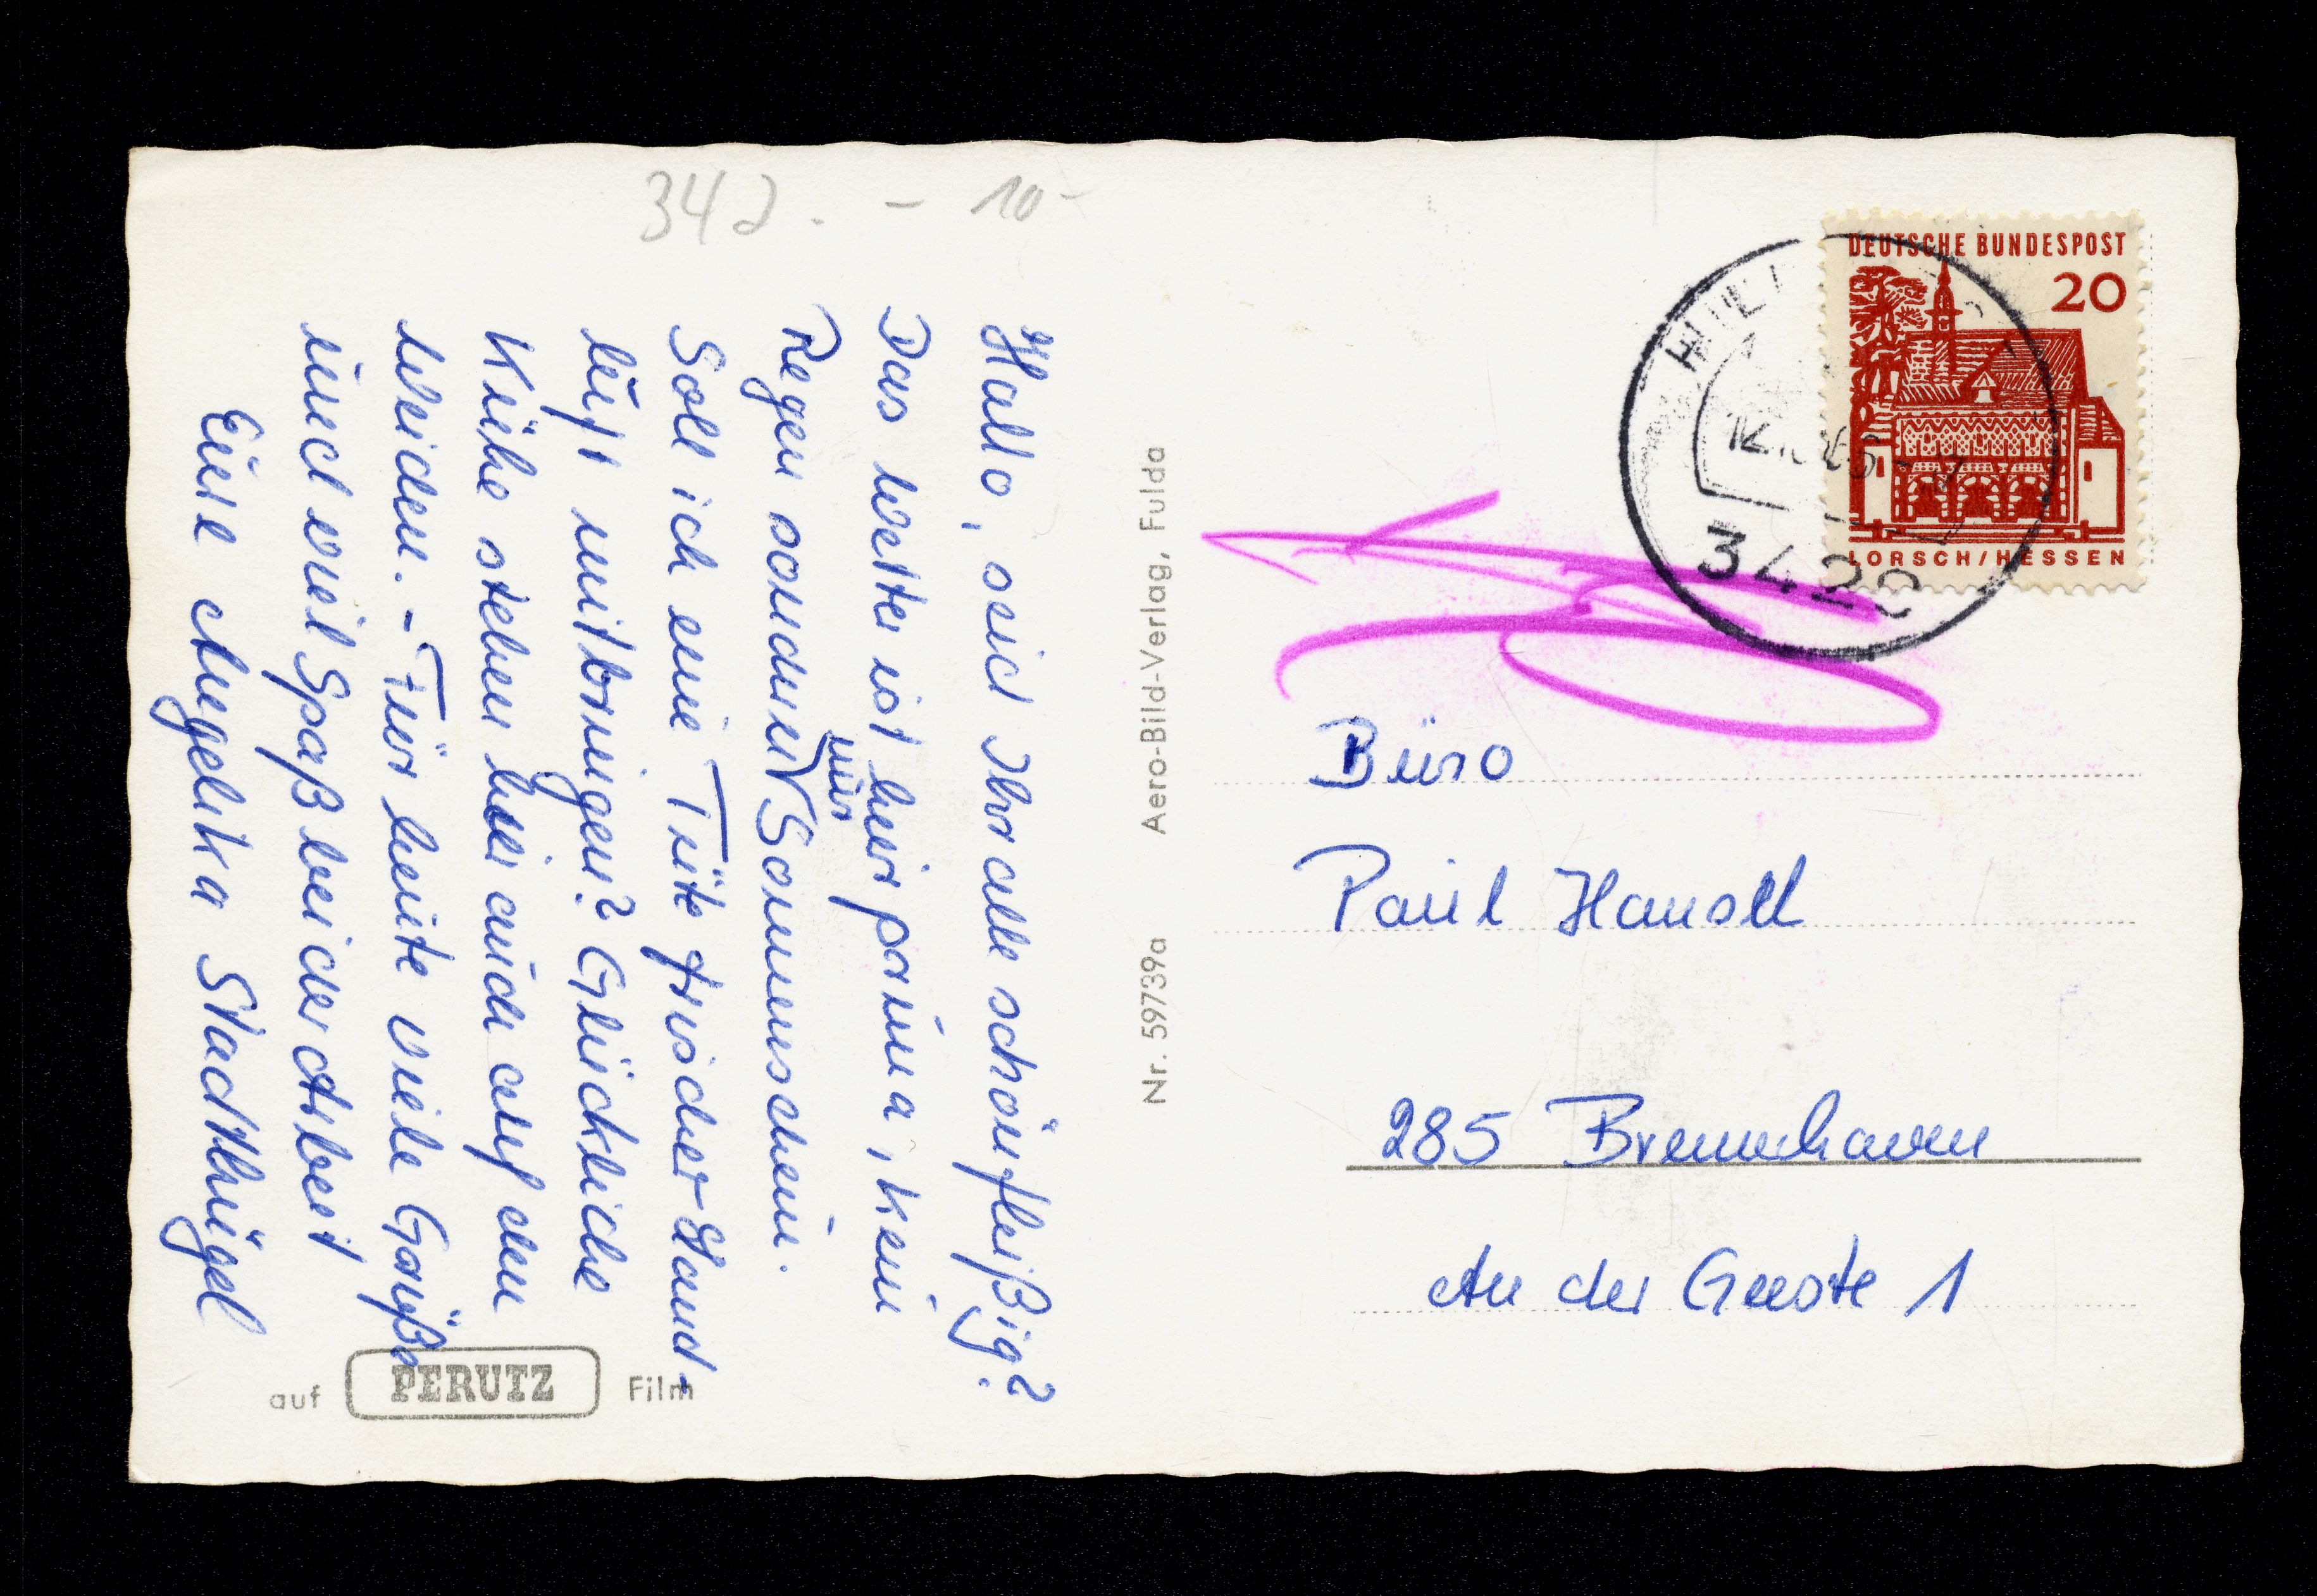 342. - 10-
Hallo, seid Ihr alle schön fleißig?
Das Wetter ist hier prima, kein
Regen sondern nur Sonnenschein.
Soll ich eine Tüte frischer Land-
luft mitbringen? Glückliche
Kühe stehen hier auch auf den
Weiden. - Für heute viele Grüße
und viel Spaß bei der Arbeit
Eure Angelika Stadthügel
auf PERUTZ Film
Nr. 59739a Aero-Bild-Verlag, Fulda
DEUTSCHE BUNDESPOST
20
LORSCH/HESSEN
3422
Büro
Paul
285 Bremerhaven
An der Geeste 1